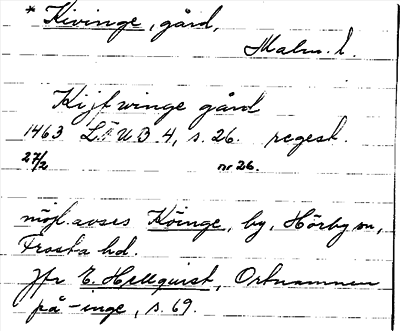 * Kivinge, gård,
Malm. l.
Kijt winge gård
1463 LÄUB. 4, s. 26. regest.
27/2 nr 26.
möjl. avses Köinge, by, Hörby sn,
Frosta hd.
Jfr E. Hellquist, Ortnamnen
på -inge, s. 69.